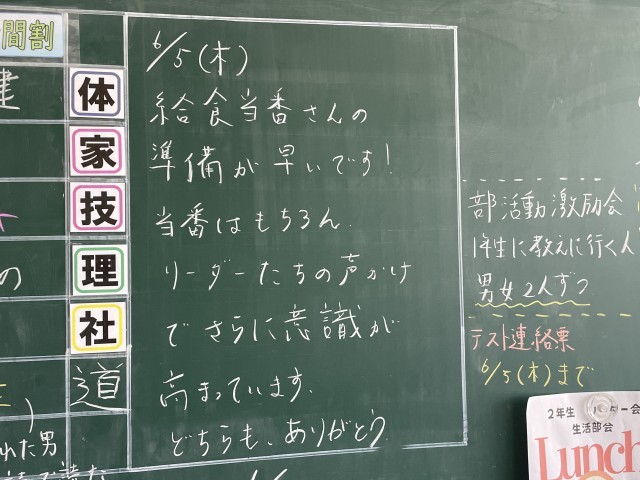 間割
体
家
技
理
社
道
の
れた男
6/5(木)
給食当番さんの
準備が早いです!
当番はもちろん
リーダーたちの声かけ
でさらに意識が
高まっています.
どちらも、ありがとう
部活動激励会
1年生に教えに行く人
男女2人ずつ
テスト連絡票
6/5(木)まで
2年生
生活部会
Lunch